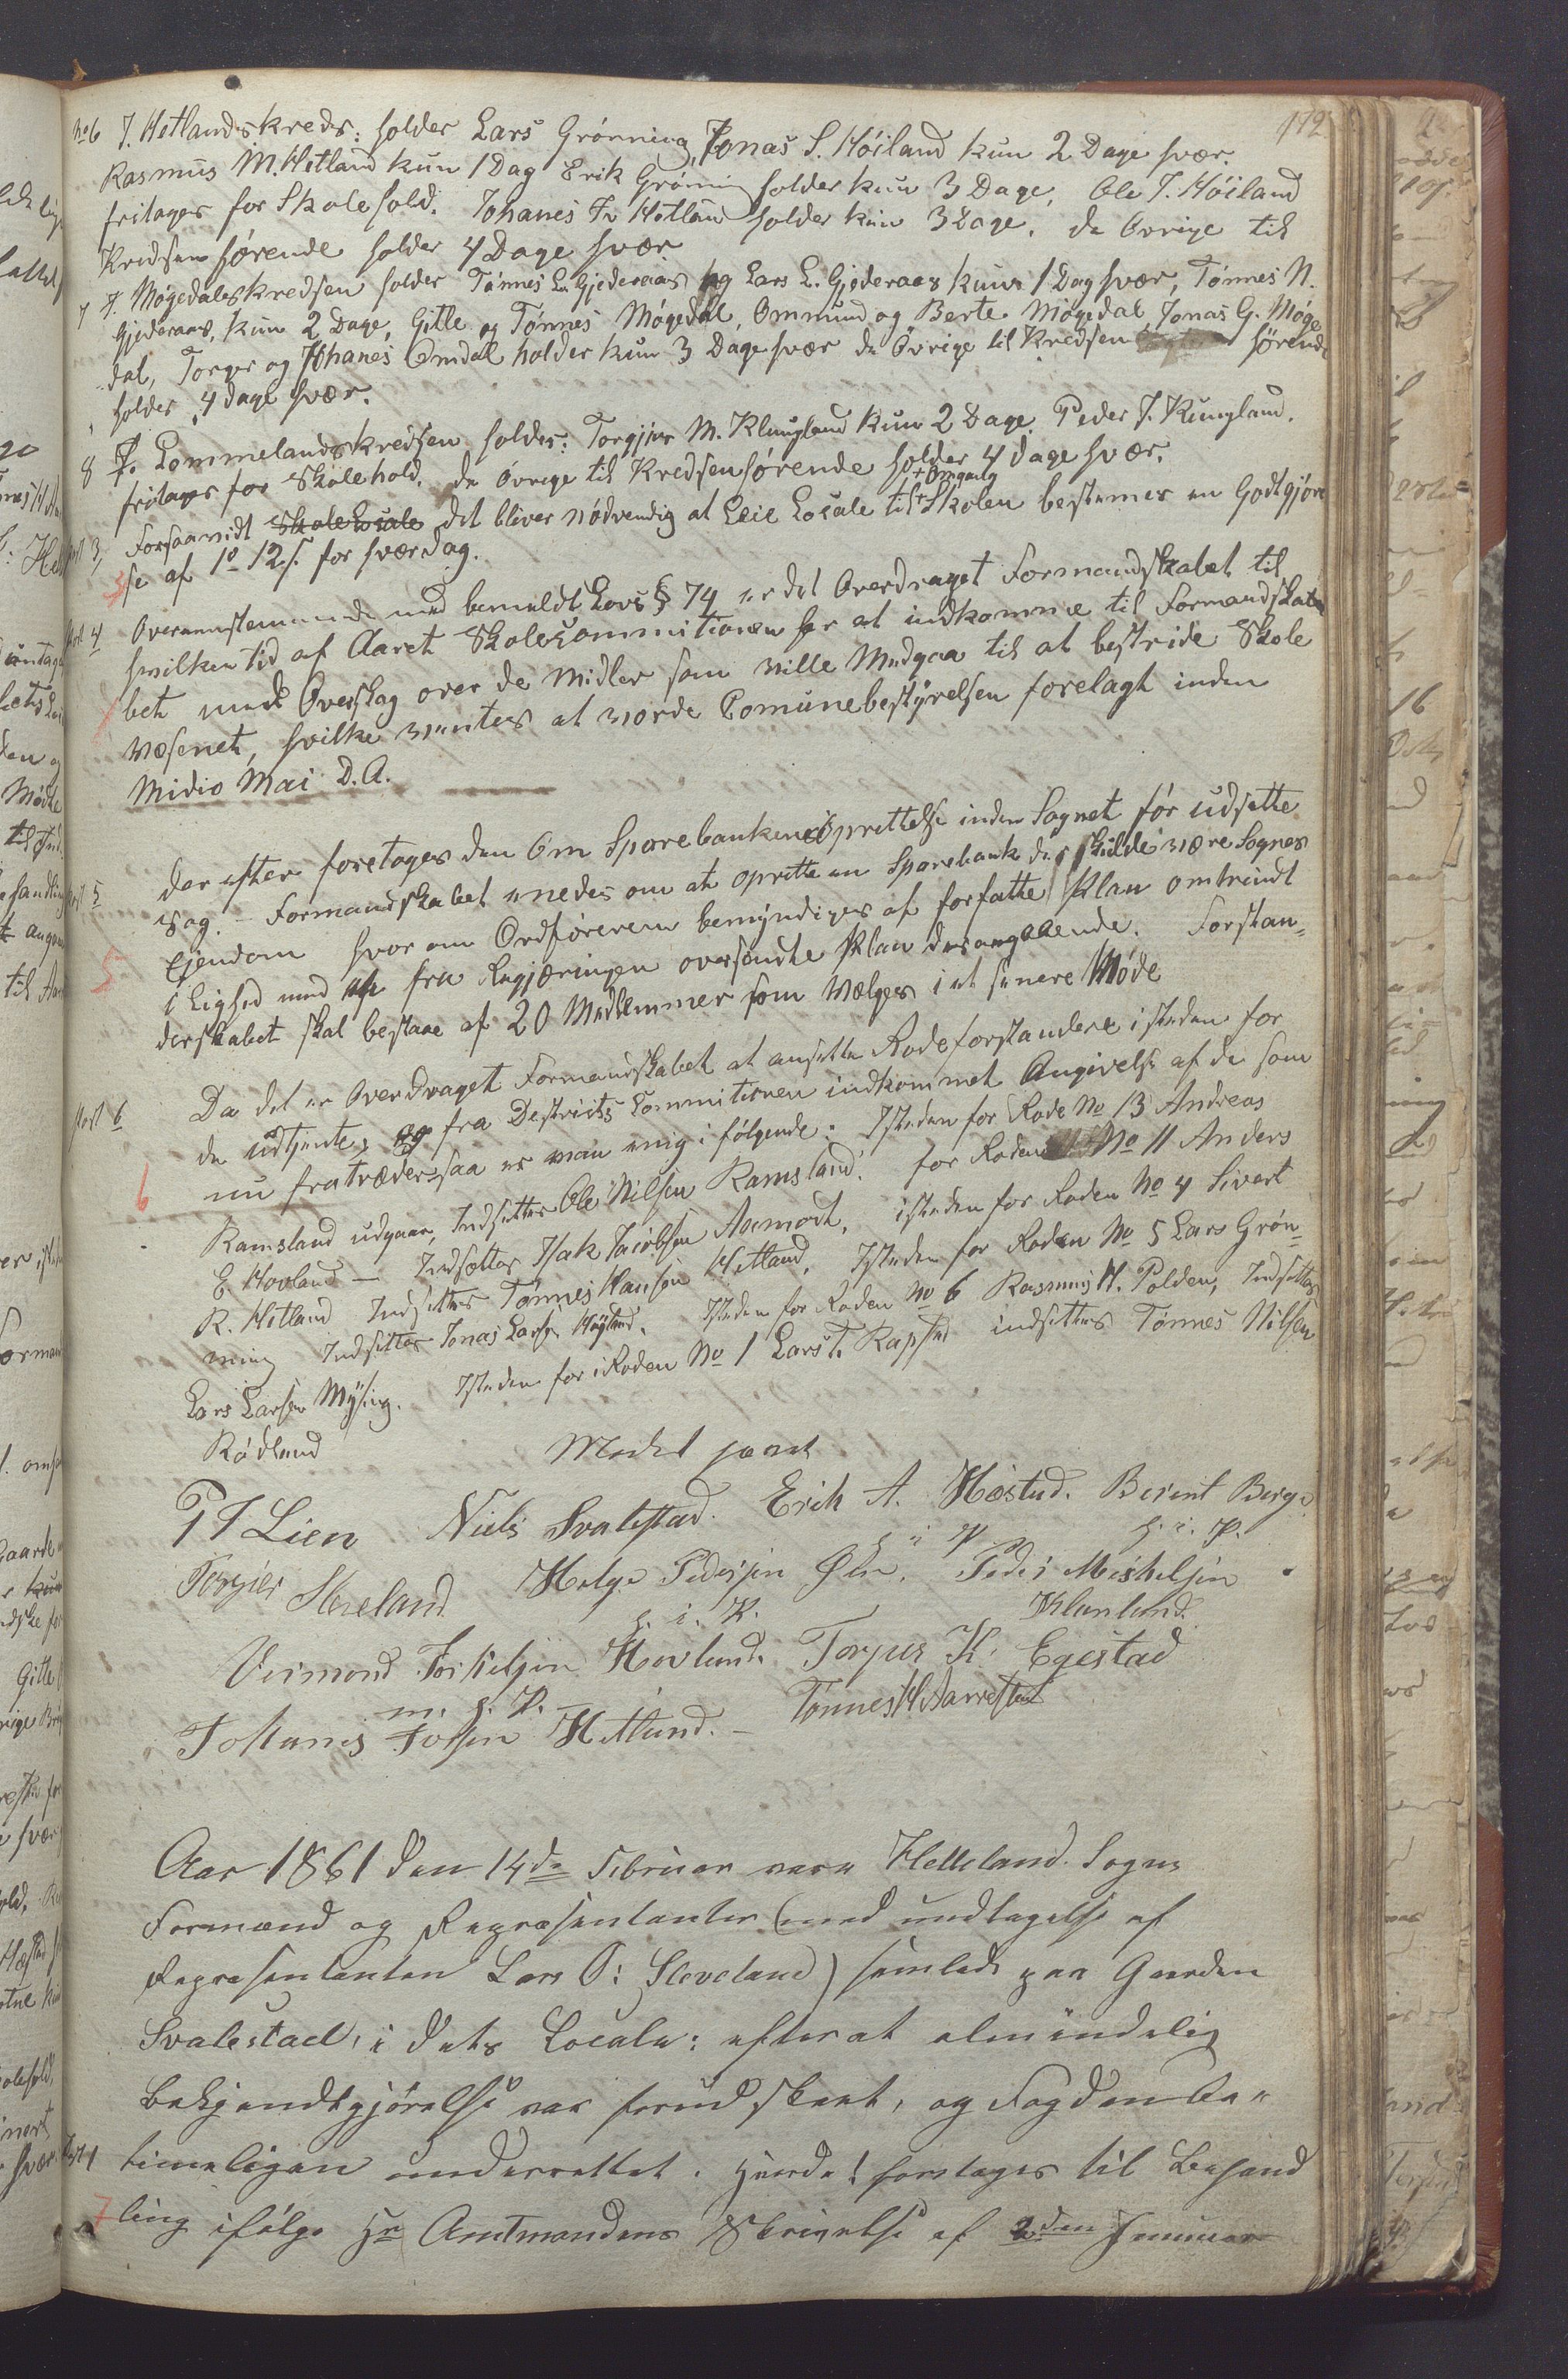 172
No 6 I. Hetlandskreds: holder Lars Grønning, Jonas S. Høiland kun 2 Dage hver.
Rasmus M. Hetland kun 1 Dag Erik Grøning holder kun 3 Dage, Ole J. Høiland
fritages for Skolehold. Johanes Hetland holder kun 3 Dage. de Øvrige til
Kredsen hørende holder 4 Dage hver
7 I. Møgedalskredsen holder Tønnes L. Gjederaas og Lars L. Gjederaas kuns 1 Dag hver, Tønnes N.
Gjederaas, kun 2 Dage, Gitle og Tønnes Møgedal, Ommund og Berte Møgedal Jonas G. Møge
dal, Torger og Johanes Omdal holder kun 3 Dage hver de Øvrige til Kredsen hørende
holder 4 dage hver.
8 I. Lommelandskredsen holder: Torgjer M. Klungland kun 2 Dage. Peder J. Klungland.
fritages for Skolehold. de øvrige til Kredsen hørende holder 4 dage hver.
+ Omgang
Post 3, Forsaavidt Skole Locale det bliver nødvendig at Leie Locale til + Skolen bestemes en Godtgjørel
3 se af 12 s. for hver dag.
Post 4 Overensstemmende med bemeldt Lovs § 74 er det Overdraget Formandskabet til
hvilken tid af Aaret Skolecommitionen har at indkomme til Formandskab
bet med Overslag over de Midler som ville Medgaa til at bestride Skole
Væsenet, hvilke ventes at vorde Comunebestyrelsen forelagt inden
Midio Mai D.A.
Post 5 Der efter foretages den Om Sparebankens Oprettelse inden Sognet før udsatte
Sag. - Formandskabet enedes om at oprette en Sparebank der skulde være Sognes
5 Ejendom hvor om Ordføreren bemyndiges at forfatte Plan omtrindt
i Lighed med fra Regjæringen oversendte Plan desangaaende. Forstan=
derskabet skal bestaae af 20 Medlemmer som Vælges i et senere Møde
Post 6 Da det er Overdraget Formandskabet at ansette Rodeforstandere isteden for
de udtjente, og fra Destricts Commitionen indkommet Angivelse af de som
6 nu fratræder saa er man enig i følgende: Isteden for Rode No 13 Andreas
Ramsland udgaar, Indsettes Ole Nilsen Ramsland. for Roden No 11 Anders
E. Hovland — Indsettes Isak Jacobsen Aamodt, isteden for Roden No 4 Sivert
R. Hetland Indsettes Tønnes Hansen Hetland, Isteden for Roden No 5 Lars Grøn=
ning Indsettes Jonas Larsen Høyland. Isteden for Roden No 6 Rasmus H. Polden, Indsettes
Lars Larsen Mysing. Isteden for Roden No 1 Lars T. Rapstad indsettes Tønnes Nilsen
Rødland
Mødet hævet
P T Lien Niels Svalestad. Erik A. Hæstad. Berent Berge
h. i. P. h. i. P.
Torger Skreland Helge Pedersen Peder Mekkelsen
h. i. P. Klunlund.
Vermond Torkelsen Hovlund. Torger K. Egestad
m. h. P.
Johanes Hetlund. Tønnes H Aarrestad
Aar 1861 den 14de Februar vare Helleland Sogns
Formænd og Repræsentanter (med undtagelse af
Repræsentanten Lars O: Sleveland) samlede paa Gaarden
Svalestad i dets Locale: efter at almindelig
Bekjendtgjørelse var forud skeet, og Fogden be=
Post 1 timeligen underrettet. Hvorda! foretages til Behand
7 ling ifølge Hr Amtmandens Skrivelse af 2den Januar